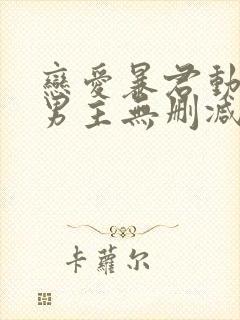 戀愛暴君動
男主無刪減
卡蘿尔